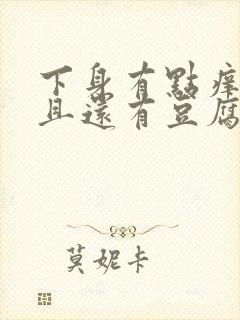 下身有點癢
且還有豆腐
莫妮卡